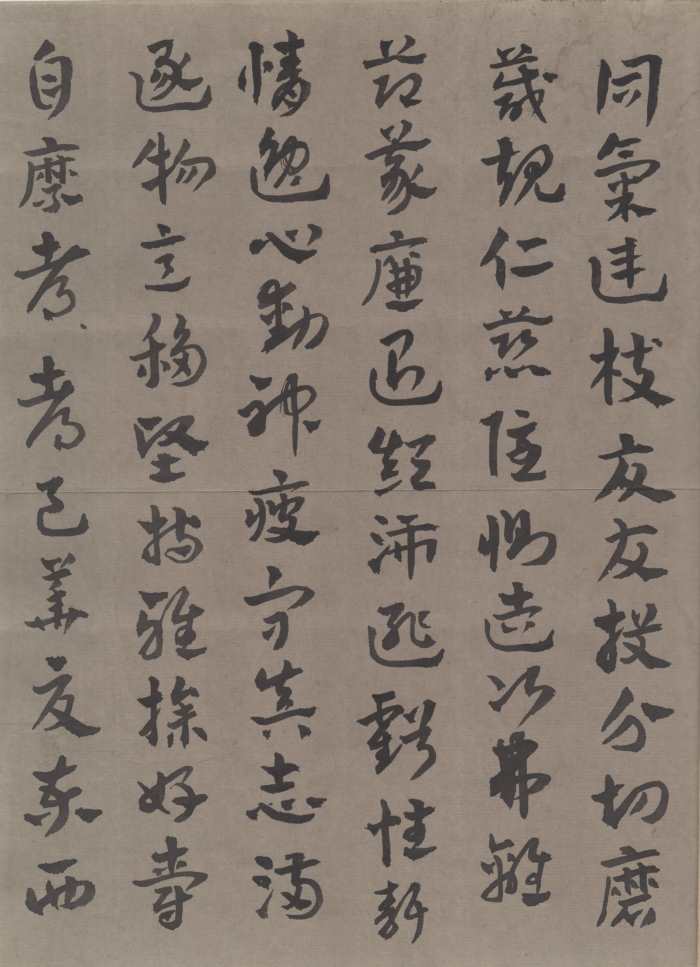 同氣連枝交友投分切磨
箴規仁慈隱惻造次弗離
節義廉退顛沛匪虧性靜
情逸心動神疲守真志滿
逐物意移堅持雅操好爵
自縻都都邑華夏東西